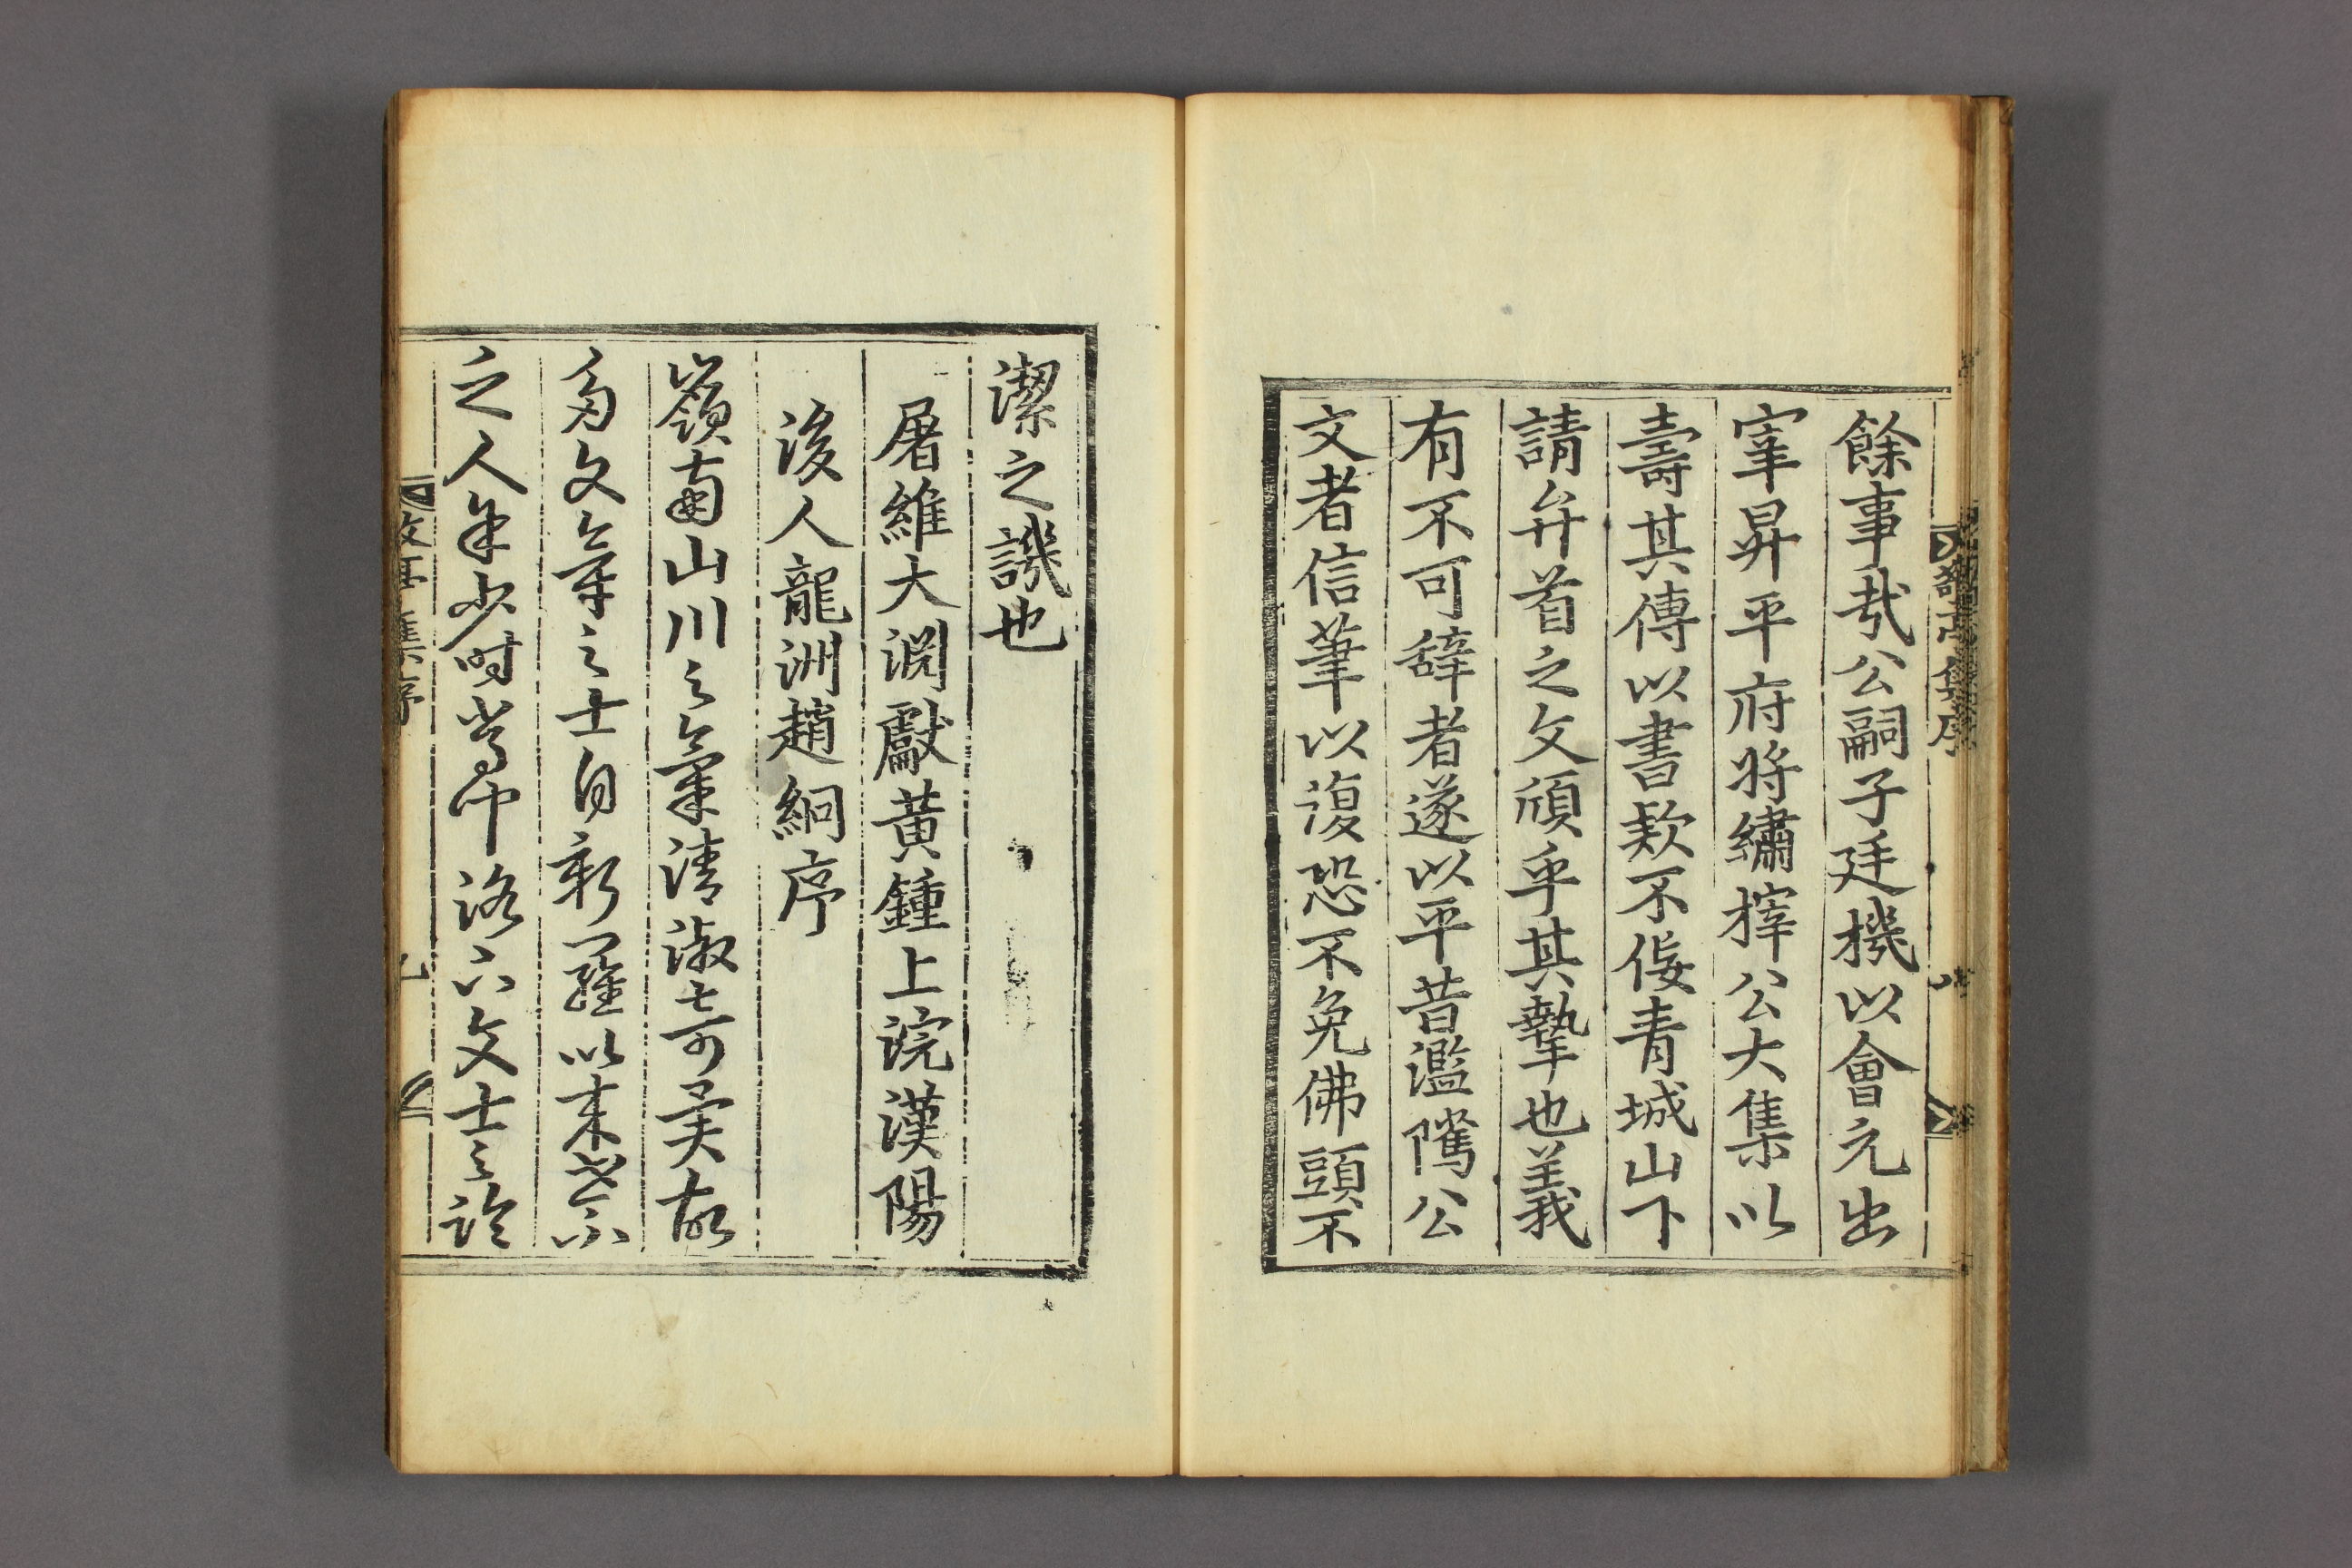 餘事㢤公嗣子廷機以會元出
宰昇平府將繡榟公大集以
壽其傳以書欵不佞青城山下
請弁首之文頎乎其摯也義
有不可辞者遂以平昔濫隲公
文者信筆以復恐不免佛頭不
潔之譏也
屠維大淵獻黃鍾上浣漢陽
後人龍洲趙絅序
嶺南山川之氣清淑奇異故
多文章之士自新羅以來世宗
之人年少時嘗中洛下文士之論